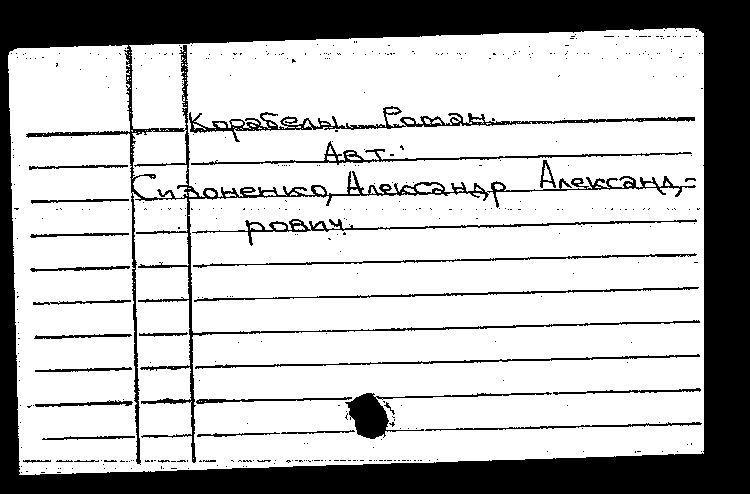 Корабелы. Роман.
Авт.:
Сизоненко, Александр Александ,=
рович.